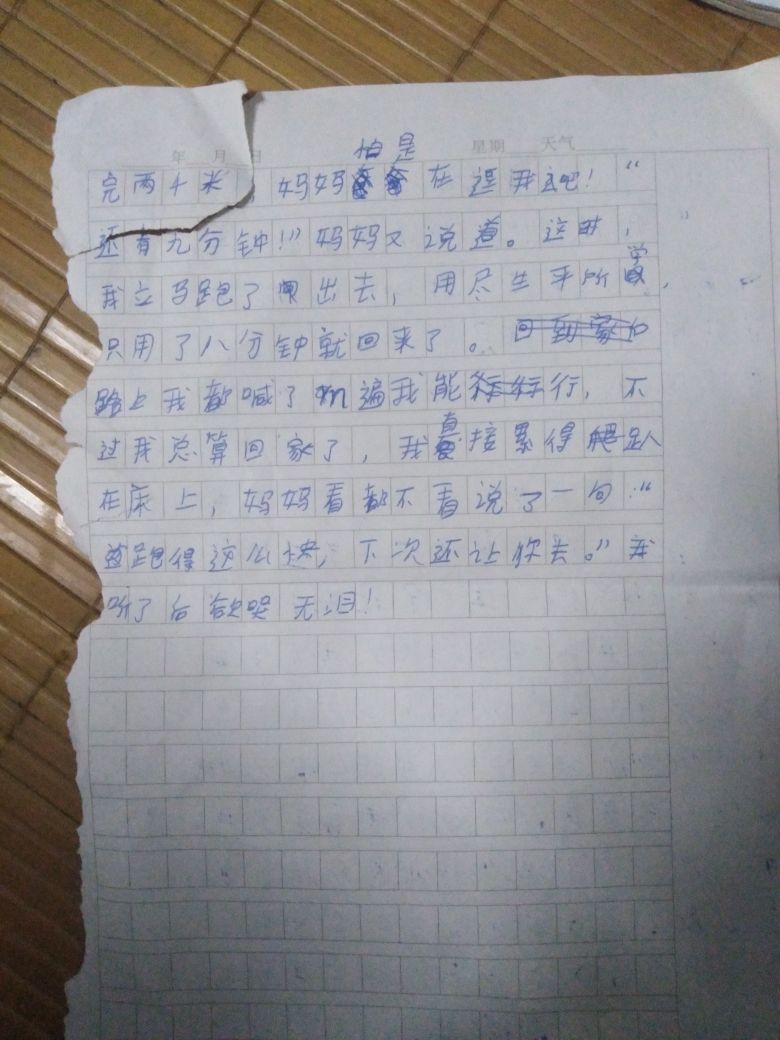 年 月 日 星期 天气
怕是
完两千米,妈妈在逗我玩吧!“
还有九分钟!”妈妈又说道。这时,
我立马跑了出去,用尽生平所学,
只用了八分钟就回来了。
路上我都喊了n遍我能行,不
过我总算回家了,我直接累得趴
在床上,妈妈看都不看说了一句:“
跑得这么快,下次还让你去。”我
听了后欲哭无泪!